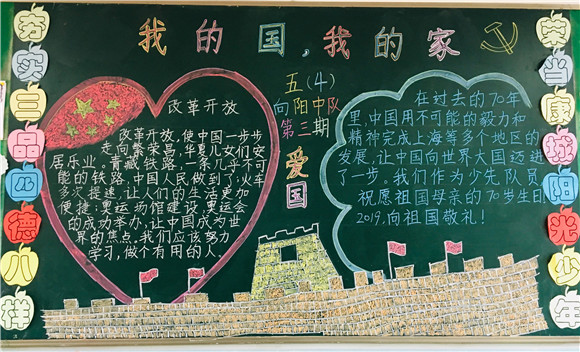 我的国,我的家
夯实三品四德八样
五(4)
向阳中队
第三期
爱国
改革开放
改革开放,使中国一步步
走向繁荣昌,华夏儿女们安
居乐业。青藏铁路,一条几乎不可
能的铁路,中国人民做到了;火车
多次提速,让人们的生活更加
便捷;奥运场馆建设,奥运会
的成功举办,让中国成为世
界的焦点。我们应该努力
学习,做个有用的人。
在过去的70年
里,中国用不可能的毅力和
精神完成上海等多个地区的
发展,让中国向世界大国迈进
了一步。我们作为少先队员
祝愿祖国母亲的70岁生日
2019,向祖国敬礼!
荣当康城阳光少年